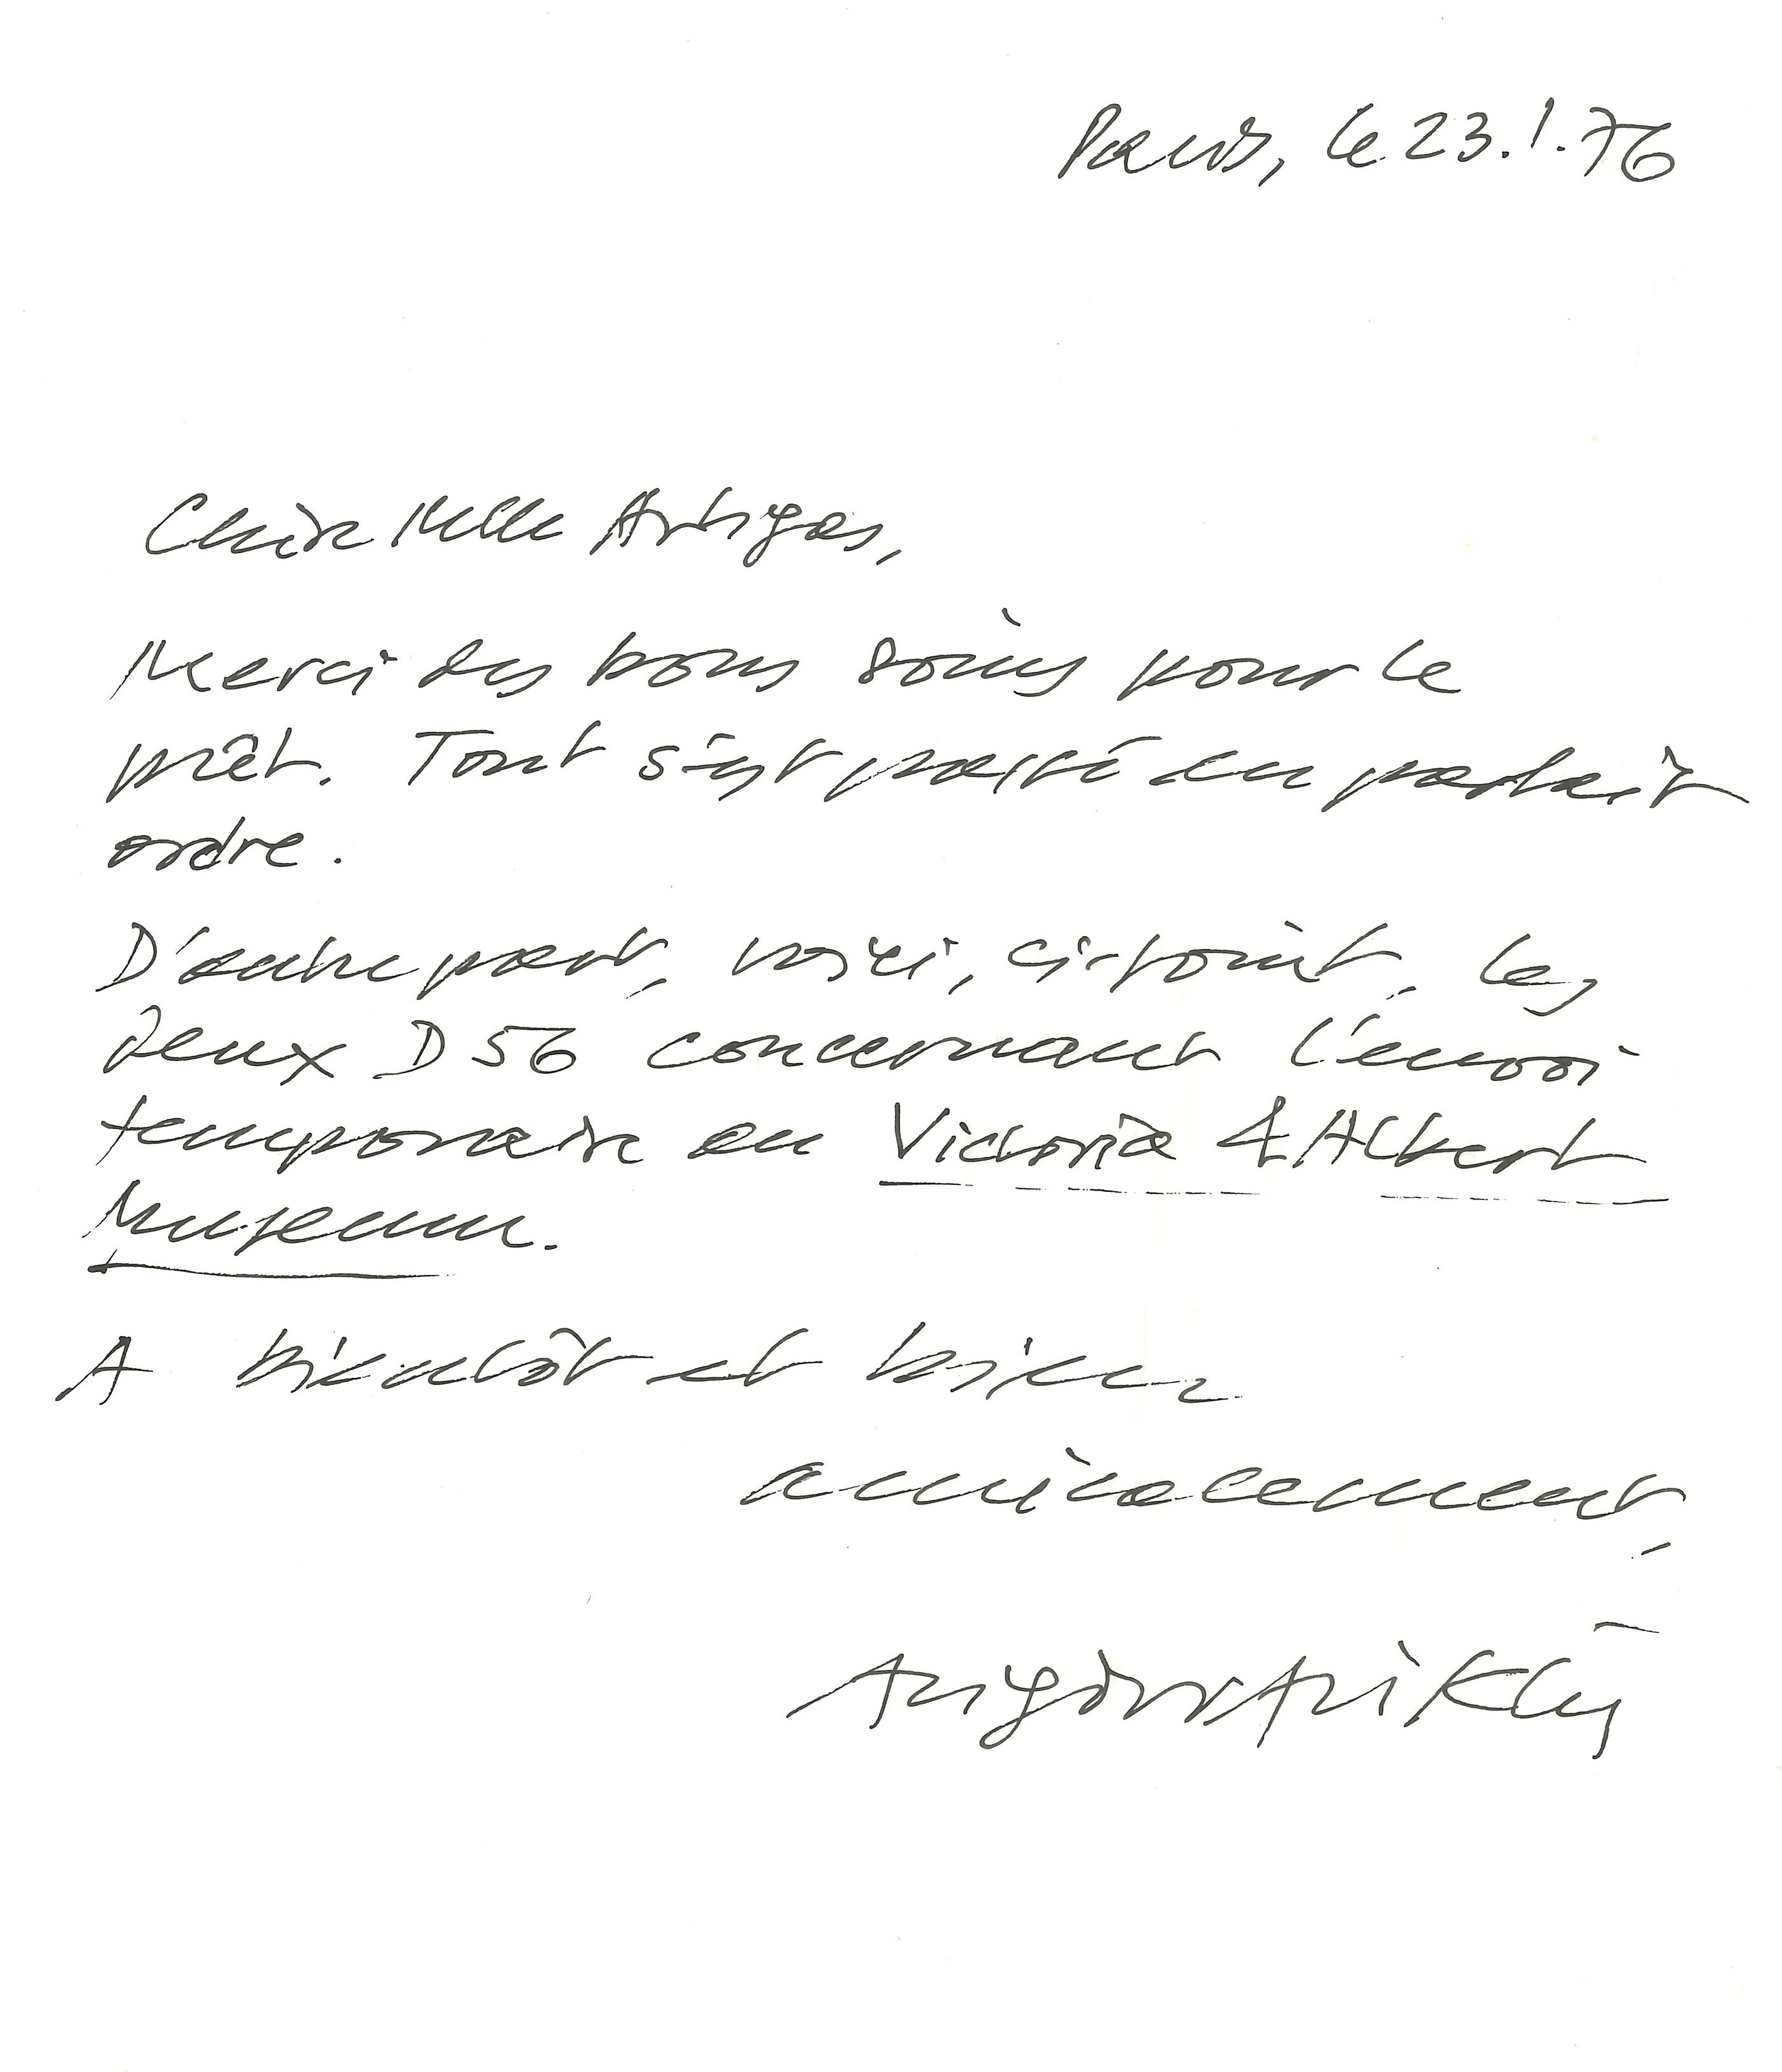 Paris, le 23.1.76
Chère Melle Artigas,
Merci des bons soins pour le
prêt. Tout s'est passé en parfait
ordre.
D'autre part, voici, ci-joint, les
deux D56 concernant l'envoi
temporaire au Victoria & Albert
Museum.
A bientôt et bien
amicalement,